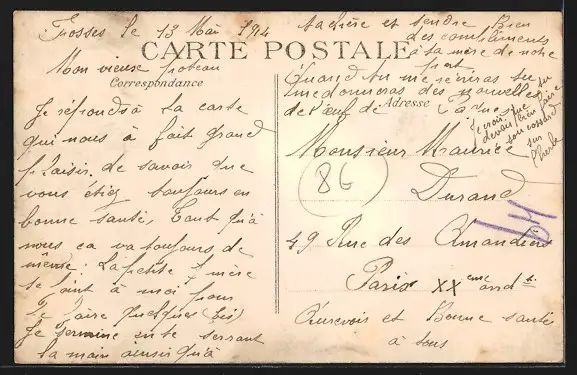 Frosses le 13 Mai 1914
CARTE POSTALE
Correspondance
Mon vieux poteau
Je réponds à la carte
qui nous à fait grand
plaisir. de savoir que
vous étiez toujours en
bonne santé, Tant qu'à
nous ca va toujours de
même. La petite mère
se joint à moi pour
te faire quelques (bis)
Je termine en te serrant
la main ainsi qu'à
ta chère et tendre Bien
des compliments
à ta mère de notre
part
Quand tu me réécriras tu
me donneras des nouvelles
de l'œuf de
Adresse
Je crois
devoir que
bien faire
son
sur
Monsieur Maurice
Durand
86
49 Rue des Amandiers
Paris XX eme arrdt
Aurevoir et Bonne santé
à tous